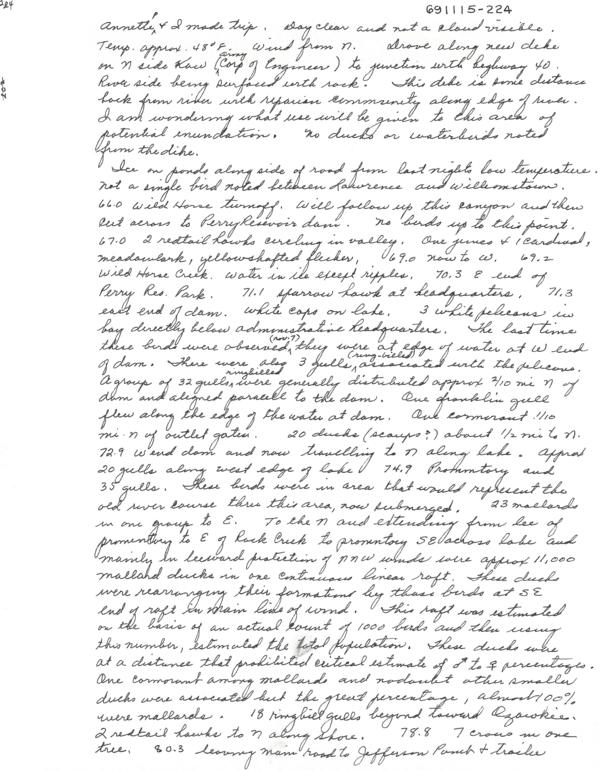 691115-224
Annette & I made trip. Day clear and not a cloud visible.
Temp. approx. 48°F. Wind from N. Drove along new dike
on N side Kaw (army Corp of Engineer) to junction with highway 40.
River side being surfaced with rock. This dike is some distance
back from river with riparian community along edge of river.
I am wondering what use will be given to this area of
potential inundation. No ducks or waterbirds noted
from the dike.
Ice on ponds along side of road from last nights low temperature.
Not a single bird noted between Lawrence and Williamstown.
66.0 Wild Horse turnoff. Will follow up this canyon and then
cut across to Perry Resevoir dam. No birds up to this point.
67.0 2 redtail hawks circling in valley. One junco & 1 cardinal,
meadowlark, yellowshafted flicker, 69.0 now to W. 69.2
Wild Horse Crick. Water in ice except ripples. 70.3 E end of
Perry Res. Park. 71.1 sparrow hawk at headquarters. 71.3
east end of dam. White caps on lake. 3 white pelicans in
bay directly below administrative headquarters. The last time
these birds were observed (nov. 7) they were at edge of water at W end
of dam. There were also 3 gulls (ring-billed) associated with the pelicans.
A group of 32 gulls, ringbilled were generally distributed approx 3/10 mi N of
dam and aligned parallel to the dam. One franklin gull
flew along the edge of the water at dam. One cormorant 1/10
mi. N of outlet gates. 20 ducks (scaups?) about 1/2 mi to N.
72.9 W end dam and now travelling to N along lake. Approx
20 gulls along west edge of lake 74.9 Promontory and
35 gulls. These birds were in area that would represent the
old river course thru this area, now submerged. 23 mallards
in one group to E. To the N and extending from lee of
promentory to E of Rock Crick to promntory SE across lake and
mainly in leeward protection of NNW winds were approx 11,000
mallard ducks in one continuous linear raft. These ducks
were rearranging their formations by those birds at SE
end of raft in main line of wind. This raft was estimated
on the basis of an actual count of 1000 birds and then using
this number, estimated the total population. These ducks were
at a distance that prohibited critical estimate of ♂ to ♀ percentages.
One cormorant among mallards and nodoubt other smaller
ducks were associated but the great percentage, almost 100%
were mallards. 18 ringbill gulls beyond toward Ozawkie.
2 redtail hawks to N along shore. 78.8 7 crows in one
tree. 80.3 leaving main road to Jefferson Point & trailer